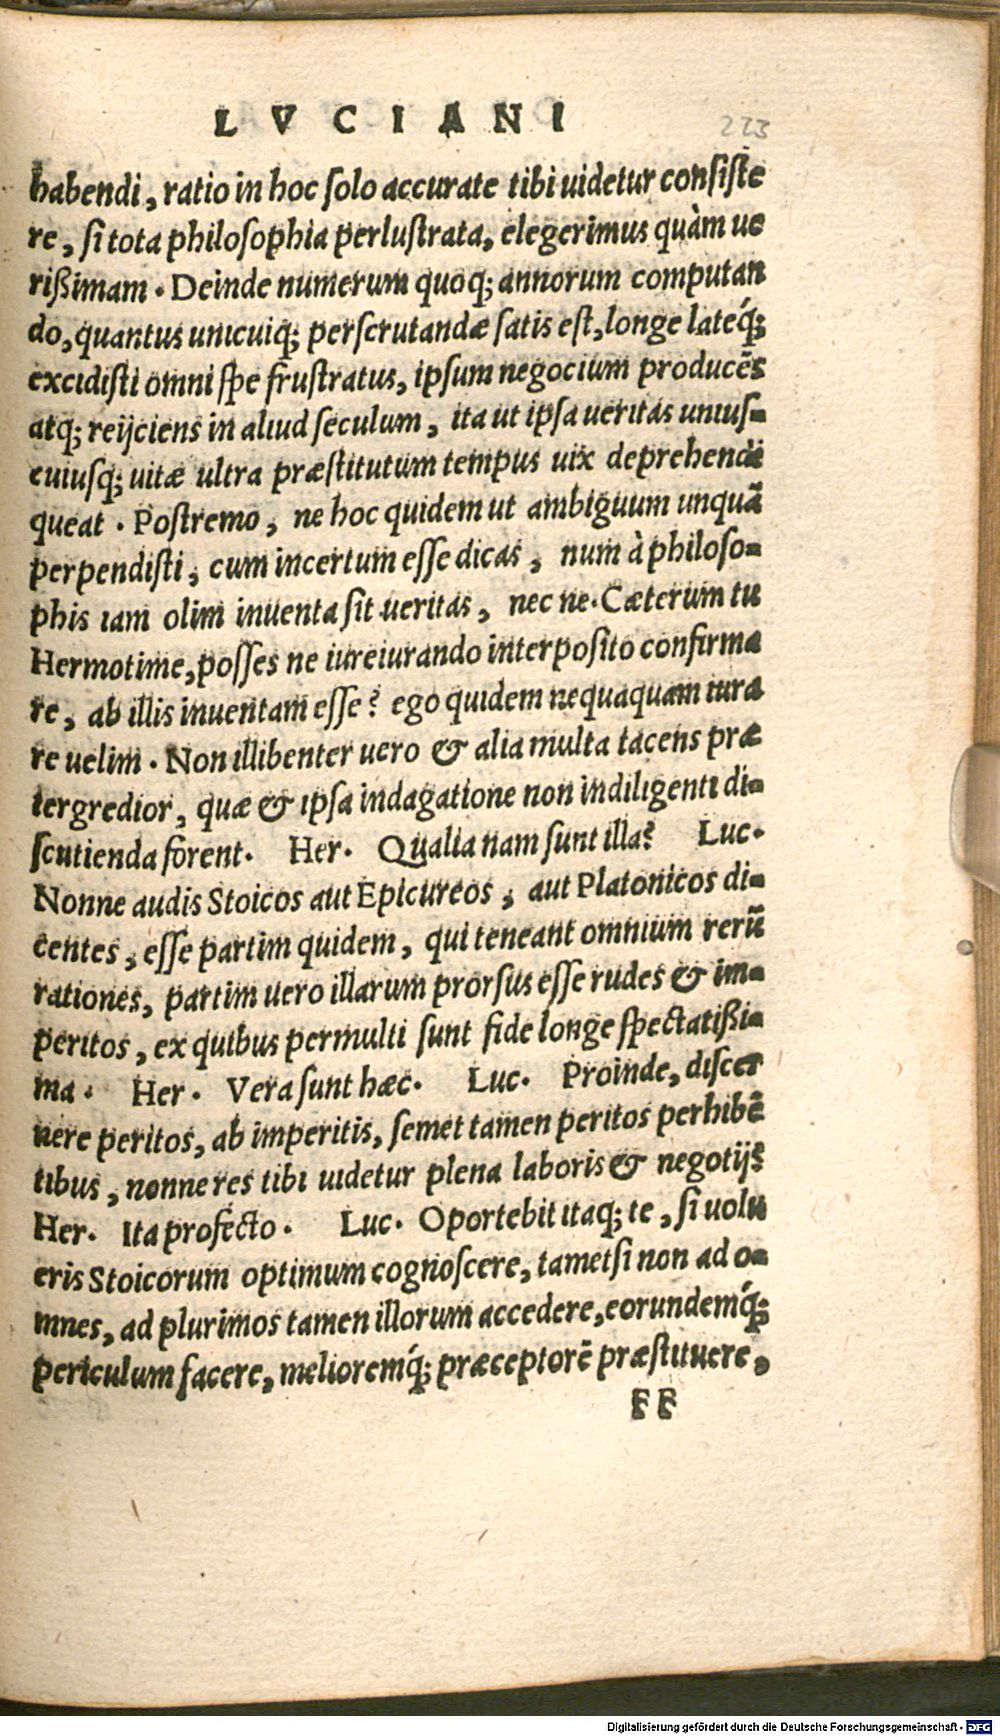 LVCIANI
223
habendi, ratio in hoc ſolo accurate tibi uidetur conſiſte
re, ſi tota philoſophia perluſtrata, elegerimus quàm ue
rißimam. Deinde numerum quoq; annorum computan
do, quantus unicuiq; perſcrutandæ ſatis eſt, longe lateq́;
excidiſti omni ſpe fruſtratus, ipſum negocium producẽs
atq; reijciens in aliud ſeculum, ita ut ipſa ueritas uniuſ-
cuiuſq; uitæ ultra præſtitutum tempus uix deprehendi
queat. Poſtremo, ne hoc quidem ut ambiguum unquã
perpendiſti, cum incertum eſſe dicas, num à philoſo-
phis iam olim inuenta ſit ueritas, nec ne. Cæterum tu
Hermotime, poſſes ne iureiurando interpoſito confirma
re, ab illis inuentam eſſe? ego quidem nequaquam iura
re uelim. Non illibenter uero & alia multa tacens præ
tergredior, quæ & ipſa indagatione non indiligenti di-
ſcutienda forent. Her. Qualia nam ſunt illa? Luc.
Nonne audis Stoicos aut Epicureos, aut Platonicos di-
centes, eſſe partim quidem, qui teneant omnium rerũ
rationes, partim uero illarum prorſus eſſe rudes & im-
peritos, ex quibus permulti ſunt fide longe ſpectatißi-
ma. Her. Vera ſunt hæc. Luc. Proinde, diſcer
nere peritos, ab imperitis, ſemet tamen peritos perhibẽ
tibus, nonne res tibi uidetur plena laboris & negotij?
Her. Ita profecto. Luc. Oportebit itaq; te, ſi uolu
eris Stoicorum optimum cognoſcere, tametſi non ad o-
mnes, ad plurimos tamen illorum accedere, eorundemq́;
periculum facere, melioremq́; præceptorẽ præſtituere,
FF
Digitalisierung gefördert durch die Deutsche Forschungsgemeinschaft - DFG